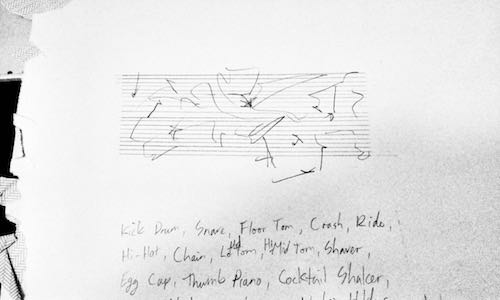 Kick Drum, Snare, Floor Tom, Crash, Ride,
Hi-Hat, Chain, Lo Mid Tom, Hi Mid Tom, Shaver,
Egg Cap, Thumb Piano, Cocktail Shaker,